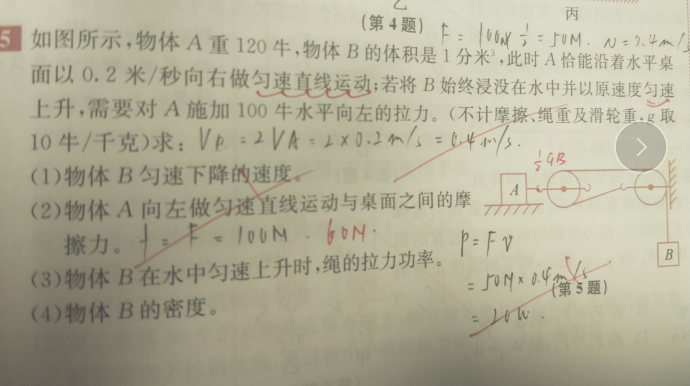 乙
丙
(第4题)
F = 100N ½ = 50N.
5 如图所示,物体A重120牛,物体B的体积是1分米³,此时A恰能沿着水平桌
面以0.2米/秒向右做匀速直线运动;若将B始终浸没在水中并以原速度匀速
上升,需要对A施加100牛水平向左的拉力。(不计摩擦、绳重及滑轮重,g取
10牛/千克)求: VP = 2VA = 2×0.2m/s = 0.4m/s.
(1)物体B匀速下降的速度。
(2)物体A向左做匀速直线运动与桌面之间的摩
擦力。 f = F = 100N . 60N.
(3)物体B在水中匀速上升时,绳的拉力功率。
(4)物体B的密度。
½GB
A
B
P = FV
= 50N×0.4m/s
(第5题)
= 20W.